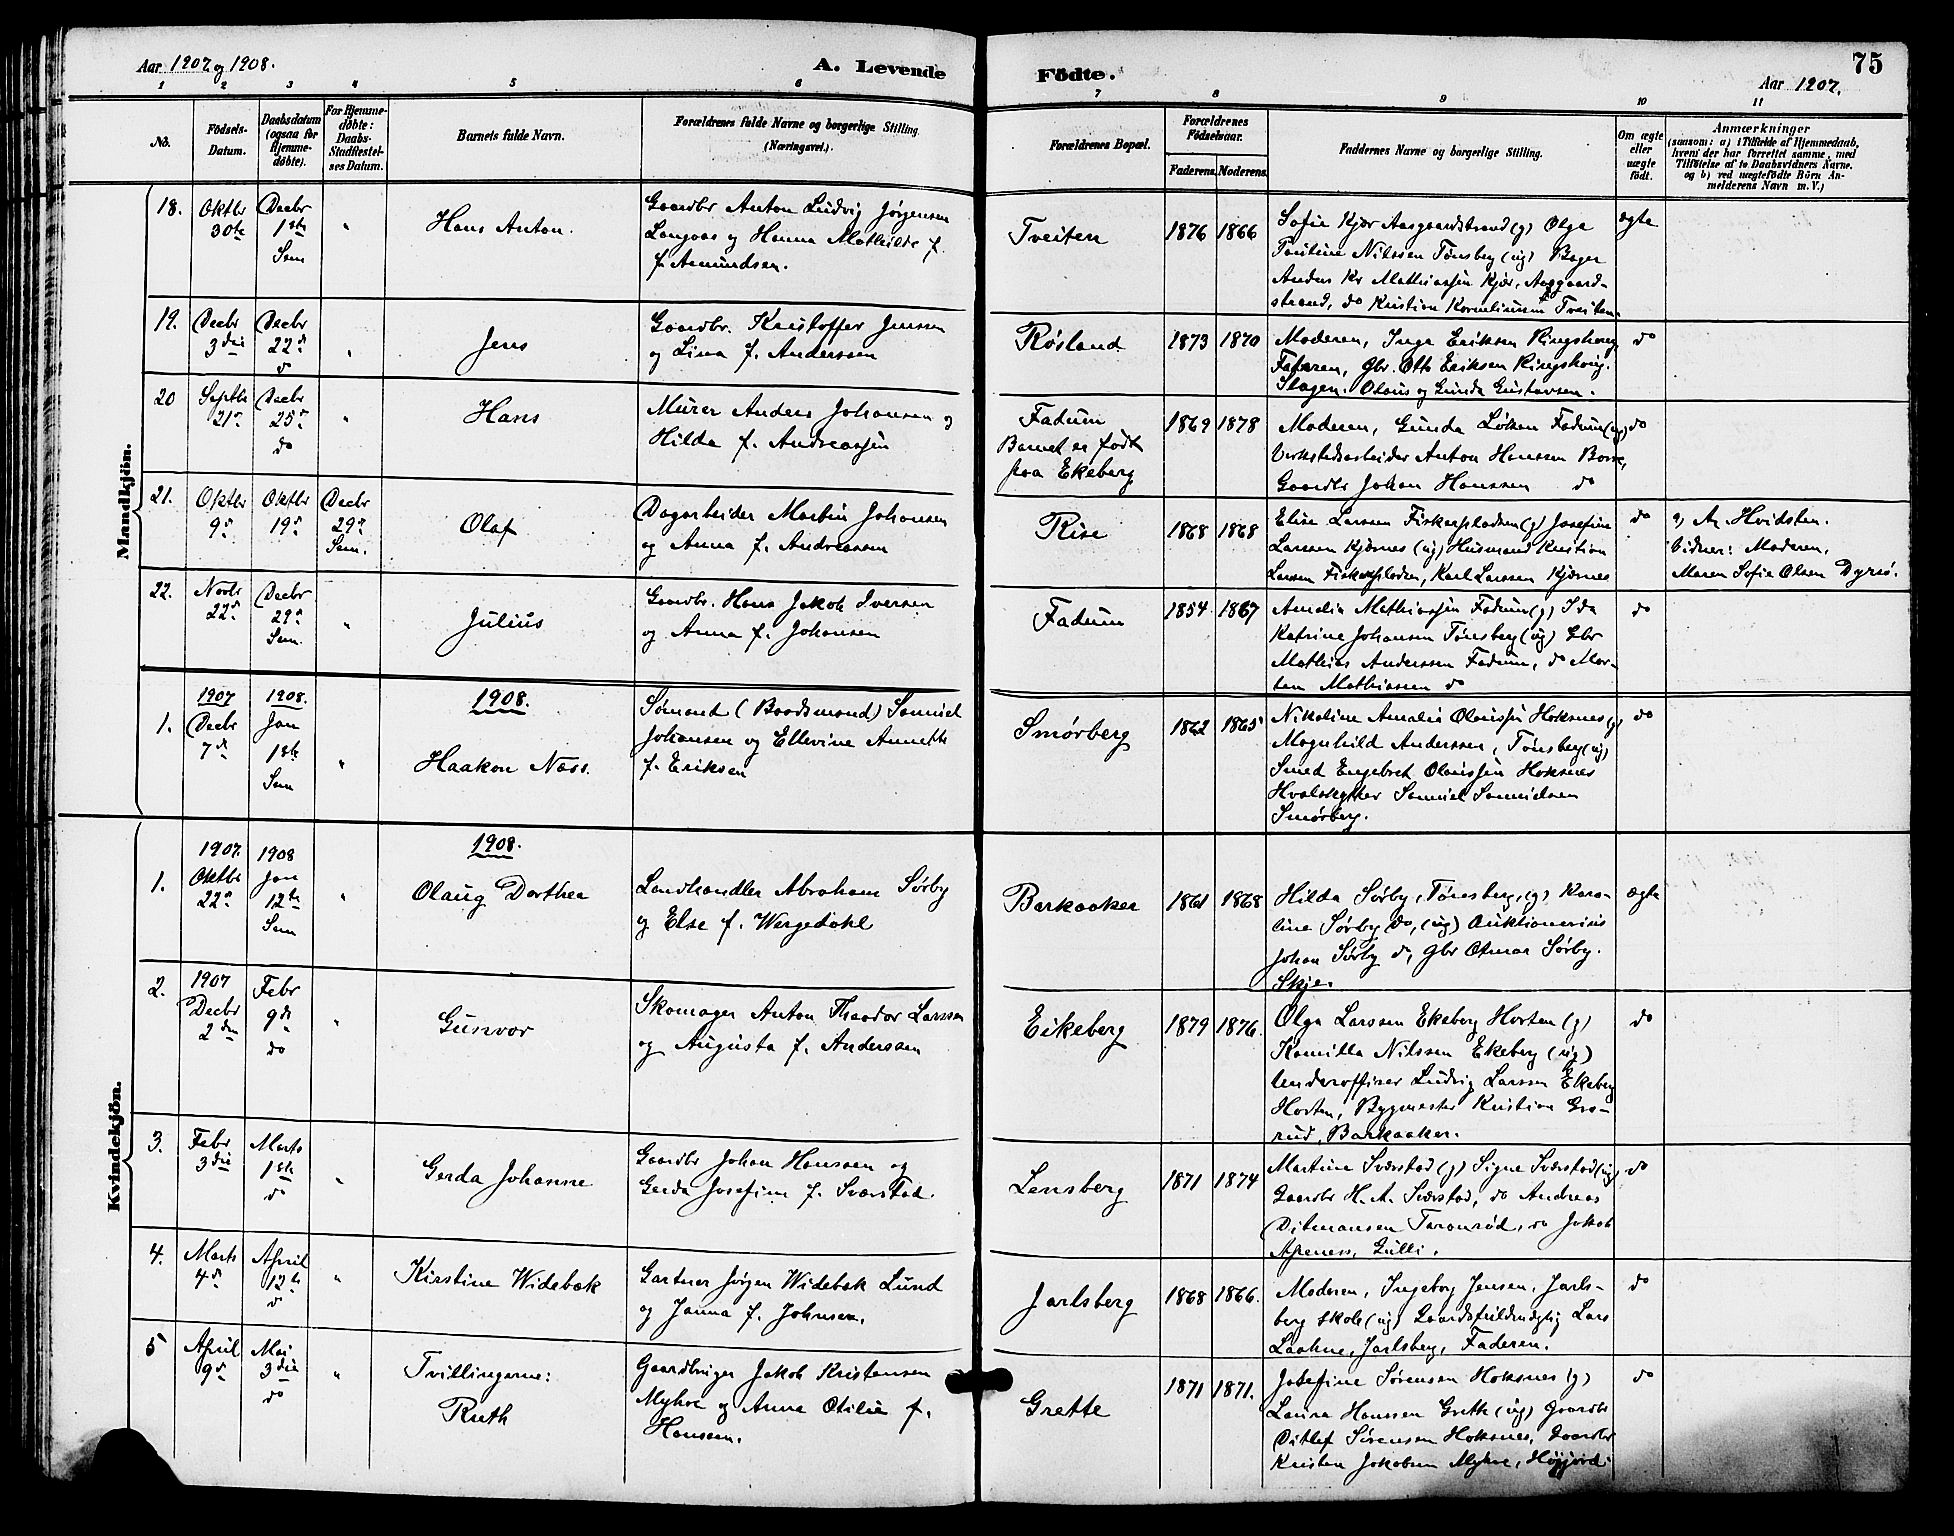 Aar 1907 og 1908.
A. Levende
Födte.
75
Aar 1907.
1 2 3 4 5 6 7 8 9 10 11
No.
Födsels-
Datum.
Daabsdatum
(ogsaa for
Hjemme-
döbte).
For Hjemme-
döbte:
Daabs-
Stadfæstel-
ses Datum.
Barnets fulde Navn.
Forældrenes fulde Navne og borgerlige Stilling.
(Næringsvei.)
Forældrenes Bopæl.
Forældrenes
Födselsaar.
Faderens.
Moderens.
Faddernes Navne og borgerlige Stilling.
Om ægte
eller
uægte
födt.
Anmærkninger
(saasom: a) i Tilfælde af Hjemmedaab,
hvem der har forrettet samme, med
Tilföielse af to Daabsvidners Navne.
og b) ved uægtefödte Börn An-
melderens Navn m. V.)
Mandkjön.
18.
Oktbr
30te
Decbr
1ste
Sem
"
Hans Anton.
Gaardbr Anton Ludvig Jørgensen
Langaas og Hanna Mathilde f.
f. Amundsen.
Tveiten
1876
1866
Sofie Kjær Aasgaardstrand (g) Olga
Nilssen Tønsberg (ug) Bager
Anders Kr Mathiassen Kjær, Aasgaard-
strand, do Kristian Korneliussen Tveiten.
ægte
19.
Decbr
3die
Decbr
22d
do
"
Jens
Gaardbr. Kristoffer Jenssen
og Lina f. Anderssen
Røsland
1873
1870
Moderen, Inga Eriksen Ringshoug,
Faderen, Gbr. Otto Eriksen Ringshoug.
Slagen. Olaus og Gunda Gustavsen.
do
20
Septbr
21d
Decbr
25d
do
"
Hans
Murer Anders Johansen og
Hilda f. Andreassen
Fadum
Barnet er født
paa Ekeberg
1869
1878
Moderen, Gunda Løken Fadum (ug)
Verkstedsarbeider Anton Hanssen Borre,
Gaardbr Johan Hanssen do
do
21.
Oktbr
9d
Oktbr
19d
Decbr
29d
Sem.
Olaf
Dagarbeider Martin Johansen
og Anna f. Andreassen
Rise
1868
1868
Elise Larsen Fiskerpladsen (g) Josefine
Larssen Kjærnes (ug) Husmand Kristian
Larsen Fiskerpladsen, Karl Larssen Kjærnes
do
a) An. Hvidsten.
Vidner: Moderen,
Maren Sofie Olsen Dyrsø.
22.
Novbr
22d
Decbr
29d
Sem.
"
Julius
Gaardbr. Hans Jakob Iversen
og Anna f. Johansen
Fadum
1854
1867
Amalie Mathiassen Fadum (g) Ida
Katrine Johansen Tønsberg (ug) Gbr
Mathias Anderssen Fadum, do Mar-
Mathiassen do
do
1.
1907
Decbr
7d
1908.
Jan
1ste
Sem
"
1908.
Haakon Næss.
Sømand (Baadsmand) Samuel
Johansen og Ellevine Annette
f. Eriksen
Smørberg
1862
1865
Nikoline Amalie Olaussen Hoksnes (g)
Magnhild Anderssen, Tønsberg (ug)
Smed Engebret Olaussen Hoksnes
Hvalskytter Samuel Samuelsen
Smørberg.
do
Kvindekjön.
1.
1907.
Oktbr
22d
1908
Jan
12te
Sem
"
1908.
Olaug Dorthea
Landhandler Abraham Sørby
og Else f. Wergedahl
Barkaaker
1861
1868
Hilda Sørby, Tønsberg, (g) Karo-
line Sørby do, (ug) Auktionarius
Johan Sørby do, Gbr Otmar Sørby.
Skje.
ægte
2.
1907
Decbr
2den
Febr
9de
do
"
Gunvor
Skomager Anton Theodor Larssen
og Augusta f. Anderssen
Eikeberg
1879
1876.
Olga Larssen Ekeberg Horten (g)
Kamilla Nilssen Ekeberg (ug)
Underofficer Ludvig Larssen Ekeberg
Horten, Bygmester Kristian Gro-
rud, Barkaaker.
do
3.
Febr
3die
Marts
1ste
do
"
Gerda Johanne
Gaardbr Johan Hanssen og
Gerda Josefine f. Sværstad.
Lensberg
1871
1874
Martine Sværstad (g) Signe Sværstad (ug)
Gaardbr H. A. Sværstad, do Andreas
Ditmansen Taranrød, do Jakob
Apenæs, Gulli.
do
4.
Marts
4d
April
12te
do
"
Kirstine Widebæk
Gartner Jørgen Widebæk Lund
og Janna f. Johnsen.
Jarlsberg
1868
1866.
Moderen, Ingeborg Jensen, Jarls-
berg skole (ug) Gaardsfuldmægtig Lars
Laahne, Jarlsberg, Faderen.
do
5
April
9d
Mai
3die
do
"
Tvillingerne:
Ruth
Gaardbruger Jakob Kristensen
Myhre og Anne Otilie f.
Hanssen.
Grette
1871
1871.
Josefine Sørensen Hoksnes (g)
Laura Hanssen Grette (ug) Gaardbr
Ditlef Sørensen Hoksnes, Gaardbr
Kristen Jakobsen Myhre, Høyjord.
do